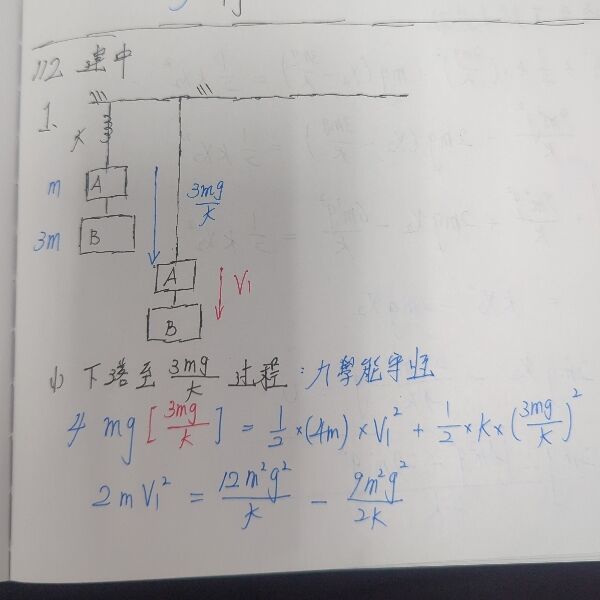 112 建中
1.
K
m A
3m B
3mg/K
A
B
V₁
(1) 下落至 3mg/K 過程:力學能守恆
4mg[3mg/K] = 1/2×(4m)×V₁² + 1/2×K×(3mg/K)²
2mV₁² = 12m²g²/K - 9m²g²/2K